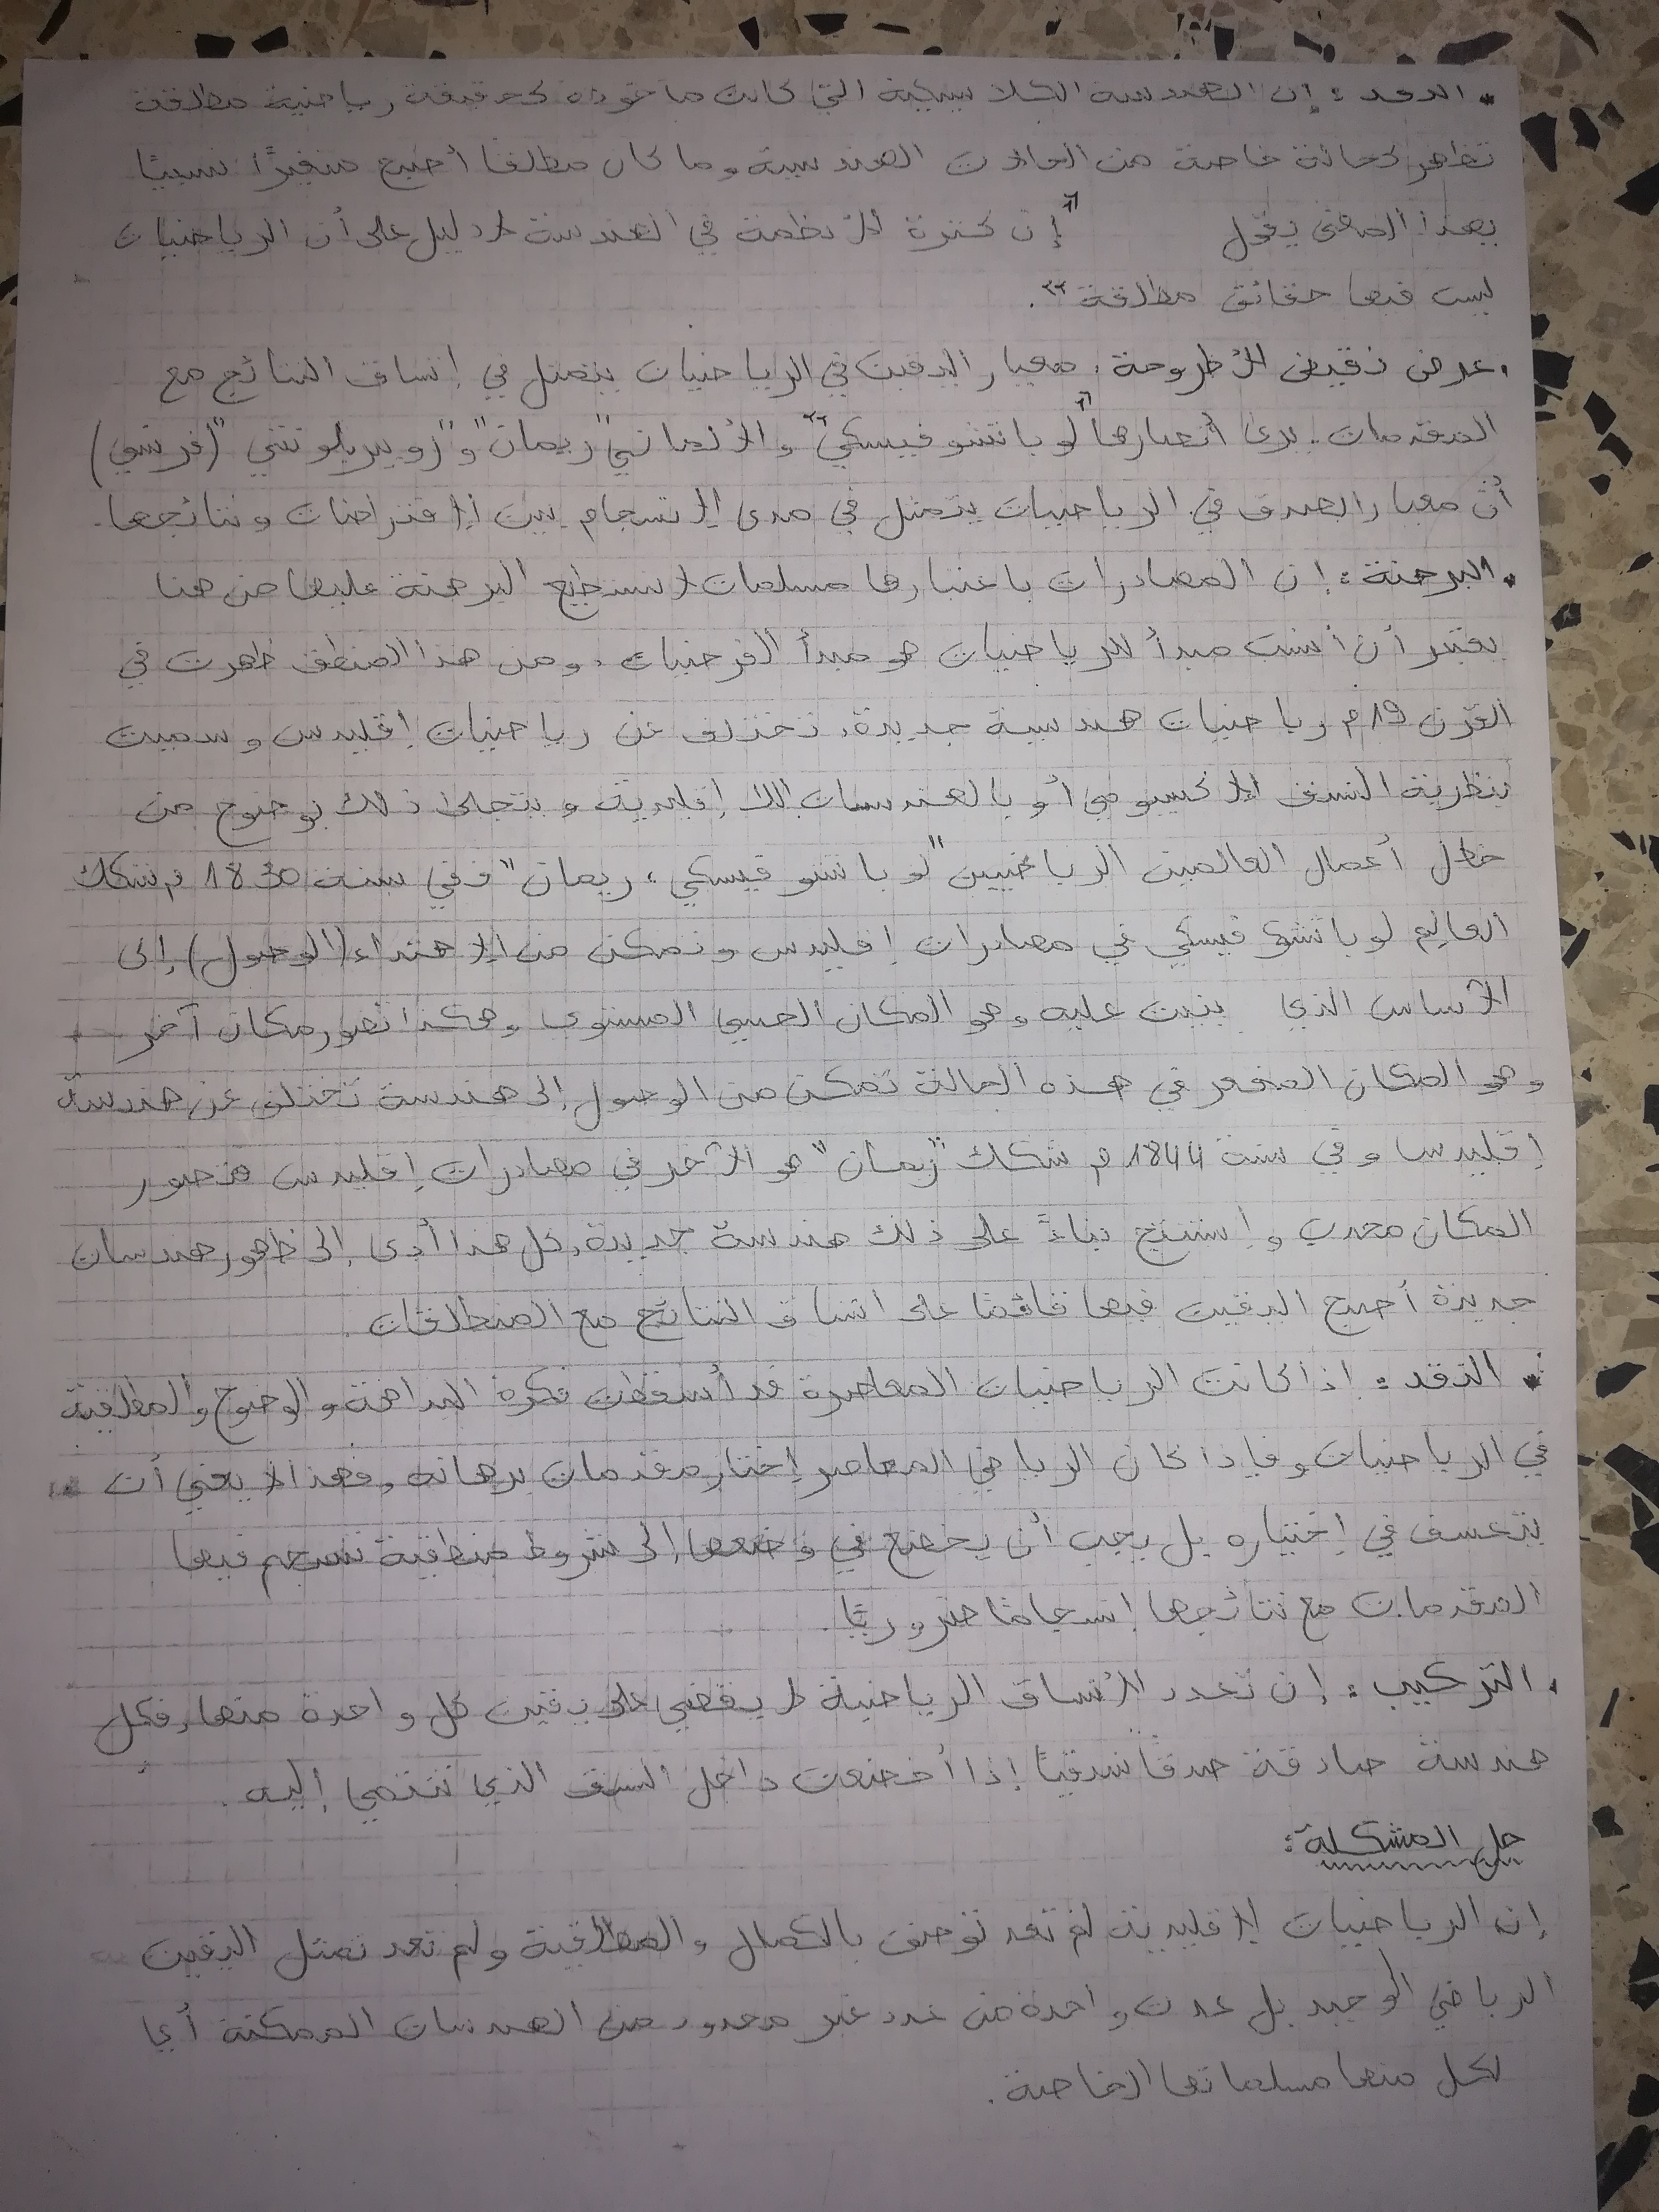 * النقد : إن الهندسة الكلاسيكية التي كانت مأخوذة كحقيقة رياضية مطلقة
تظهر كحالة خاصة من الحالات الهندسية وما كان مطلقا أصبح متغيرًا نسبيًا
بهذا المعنى يقول " إن كثرة الأنظمة في الهندسة لدليل على أن الرياضيات
ليست فيها حقائق مطلقة".
. عرض نقيض الأطروحة : معيار اليقين في الرياضيات يتمثل في إتساق النتائج مع
المقدمات .. يرى أنصارها "لوباتشوفيسكي" والألماني "ريمان" و "روبير بلونشي" (فرنسي)
أن معيار الصدق في الرياضيات يتمثل في مدى الإنسجام بين الإفتراضات ونتائجها .
. البرهنة : إن المصادرات باعتبارها مسلمات لا نستطيع البرهنة عليها من هنا
يعتبر أن أنسب مبدأ للرياضيات هو مبدأ الفرضيات . ومن هذا المنطق ظهرت في
القرن 19م رياضيات هندسية جديدة، تختلف عن رياضيات إقليدس وسميت
بنظرية النسق الأكسيومي أو بالهندسات اللا إقليدية ويتجلى ذلك بوضوح من
خلال أعمال العالمين الرياضيين "لوباتشوفيسكي ، ريمان" ففي سنة 1830م شكك
العالم لوباتشوفيسكي في مصادرات إقليدس وتمكن من الإهتداء (الوصول) إلى
الأساس الذي بنيت عليه وهو المكان الحسي المستوي وهكذا تصور مكان آخر
وهو المكان المقعر في هذه الحالة تمكن من الوصول إلى هندسة تختلف عن هندسة
إقليدس وفي سنة 1844م شكك "ريمان" هو الآخر في مصادرات إقليدس فتصور
المكان محدب و إستنتج بناءً على ذلك هندسة جديدة، كل هذا أدى إلى ظهور هندسات
جديدة أصبح اليقين فيها قائمًا على اتساق النتائج مع المنطلقات .
* النقد : إذا كانت الرياضيات المعاصرة قد أسقطت فكرة البداهة والوضوح والمطلقية
في الرياضيات، فإذا كان الرياضي المعاصر إختار مقدمات برهانه، فهذا لا يعني أن
يتعسف في إختياره بل يجب أن يخضع في وضعها إلى شروط منطقية تنسجم فيها
المقدمات مع نتائجها إنسجامًا ضروريًا .
. التركيب : إن تعدد الأنساق الرياضية لا يقضي على يقين كل واحدة منها، فكل
هندسة صادقة صدقا نسقيًا إذا أخضعت داخل النسق الذي تنتمي إليه .
حل المشكلة :
إن الرياضيات الإقليدية لم تعد توصف بالكمال والمطلقية ولم تعد تمثل اليقين
الرياضي الوحيد بل عدت واحدة من عدد غير محدود من الهندسات الممكنة أي
لكل منها مسلماتها الخاصة .